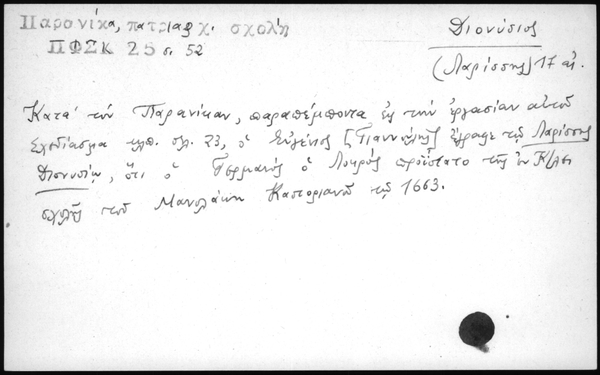 Παρανίκα, πατριαρχ. σχολὴ
ΠΦΣΚ 25 σ. 52
Διονύσιος
(Λαρίσσης) 17 αἰ.
Κατὰ τὸν Παρανίκαν, παραπέμποντα εἰς τὴν ἐργασίαν αὐτοῦ
Σχεδίασμα κλπ. σελ. 23, ὁ Εὐγένιος [Γιαννούλης] ἔγραφε τῷ Λαρίσσης
Διονυσίῳ, ὅτι ὁ Γερμανὸς ὁ Λοκρὸς προΐστατο τῆς ἐν Κ/λει
σχολῆς τοῦ Μανολάκη Καστοριανοῦ τῷ 1663.